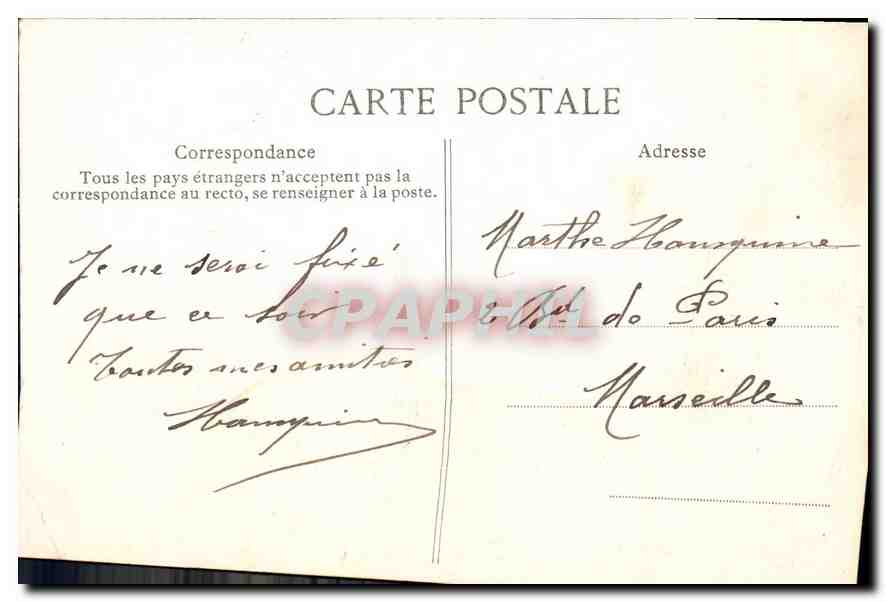 CARTE POSTALE
Correspondance
Tous les pays étrangers n'acceptent pas la
correspondance au recto, se renseigner à la poste.
Je ne serai fixé
que ce soir
Toutes mes amitiés
Adresse
Marthe
2 Bd de Paris
Marseille
CPAPHIL